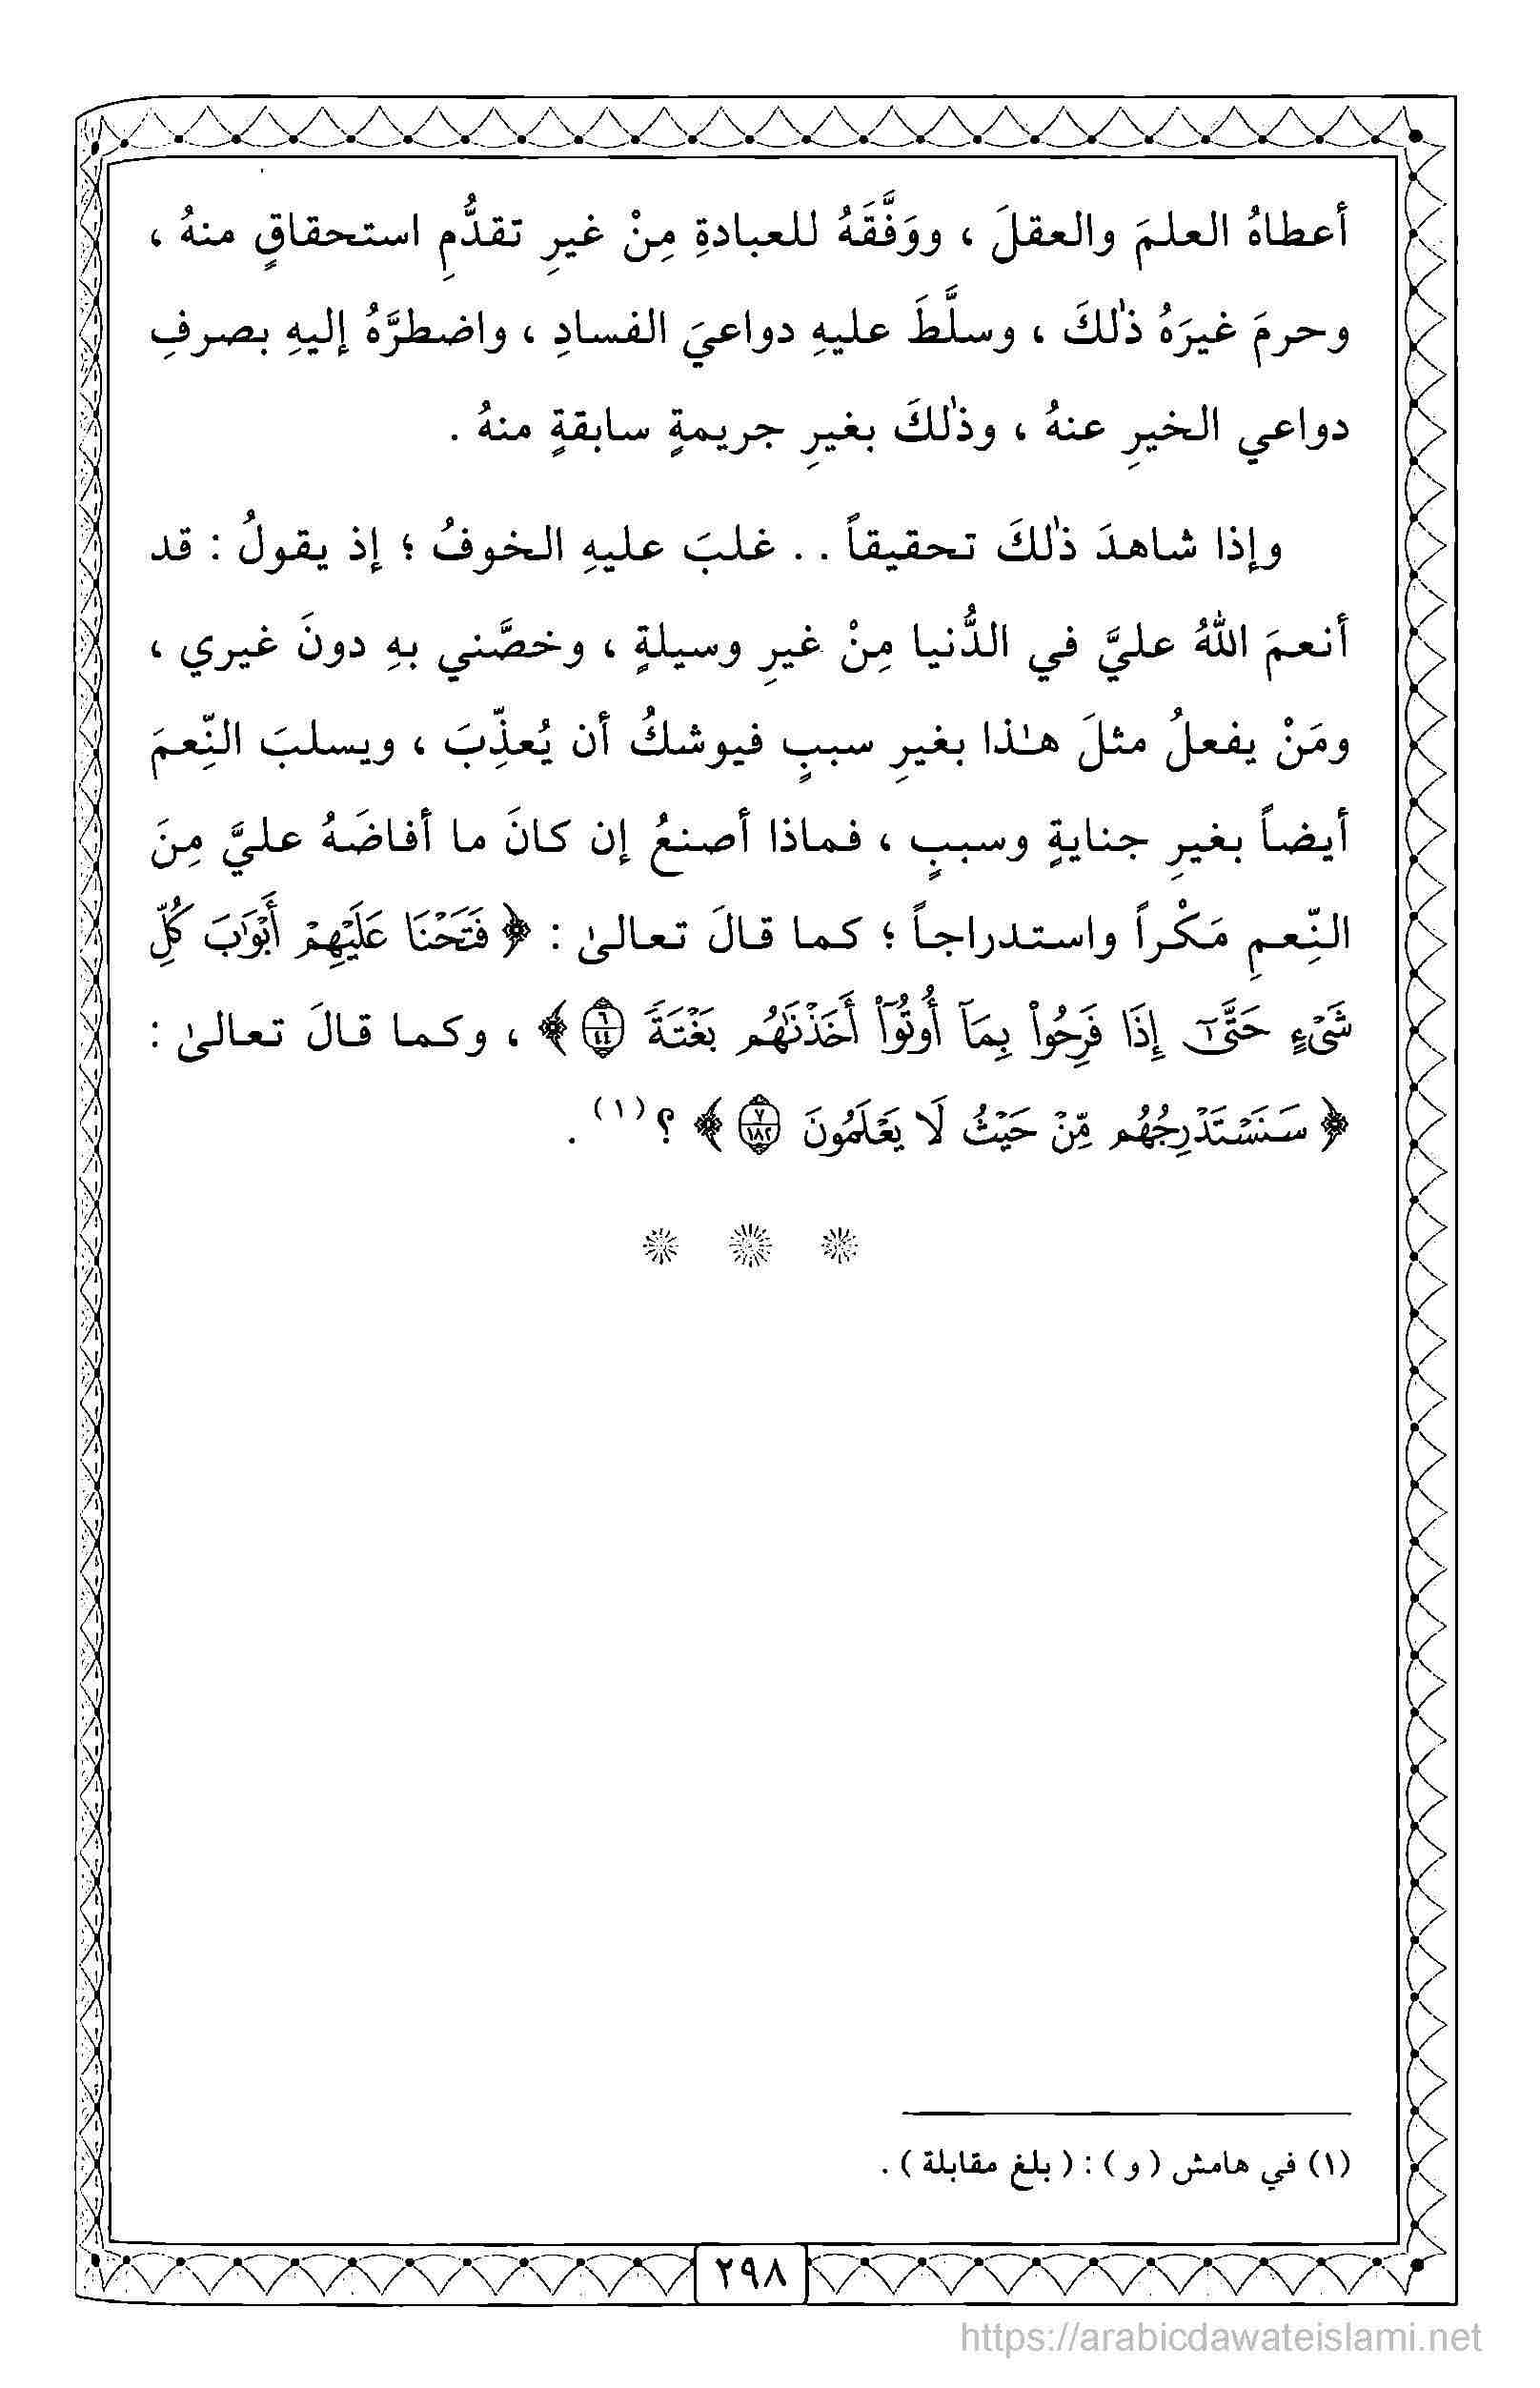 أعطاهُ العلمَ والعقلَ ، ووَفَّقَهُ للعبادةِ مِنْ غيرِ تقدُّمِ استحقاقٍ منهُ ،
وحرمَ غيرَهُ ذٰلكَ ، وسلَّطَ عليهِ دواعيَ الفسادِ ، واضطرَّهُ إليهِ بصرفِ
دواعي الخيرِ عنهُ ، وذٰلكَ بغيرِ جريمةٍ سابقةٍ منهُ .
وإذا شاهدَ ذٰلكَ تحقيقاً . . غلبَ عليهِ الخوفُ ؛ إذ يقولُ : قد
أنعمَ اللهُ عليَّ في الدُّنيا مِنْ غيرِ وسيلةٍ ، وخصَّني بهِ دونَ غيري ،
ومَنْ يفعلُ مثلَ هـٰذا بغيرِ سببٍ فيوشكُ أن يُعذِّبَ ، ويسلبَ النِّعمَ
أيضاً بغيرِ جنايةٍ وسببٍ ، فماذا أصنعُ إن كانَ ما أفاضَهُ عليَّ مِنَ
النِّعمِ مَكْراً واستدراجاً ؛ كما قالَ تعالىٰ : ﴿ فَتَحْنَا عَلَيْهِمْ أَبْوَٰبَ كُلِّ
شَىْءٍ حَتَّىٰٓ إِذَا فَرِحُوا۟ بِمَآ أُوتُوٓا۟ أَخَذْنَٰهُم بَغْتَةً ٦ ٤٤ ﴾ ، وكما قالَ تعالىٰ :
﴿ سَنَسْتَدْرِجُهُم مِّنْ حَيْثُ لَا يَعْلَمُونَ ٧ ١٨٢ ﴾ ؟ (١) .
(١) في هامش ( و ) : ( بلغ مقابلة ) .
٢٩٨
https://arabicdawateislami.net